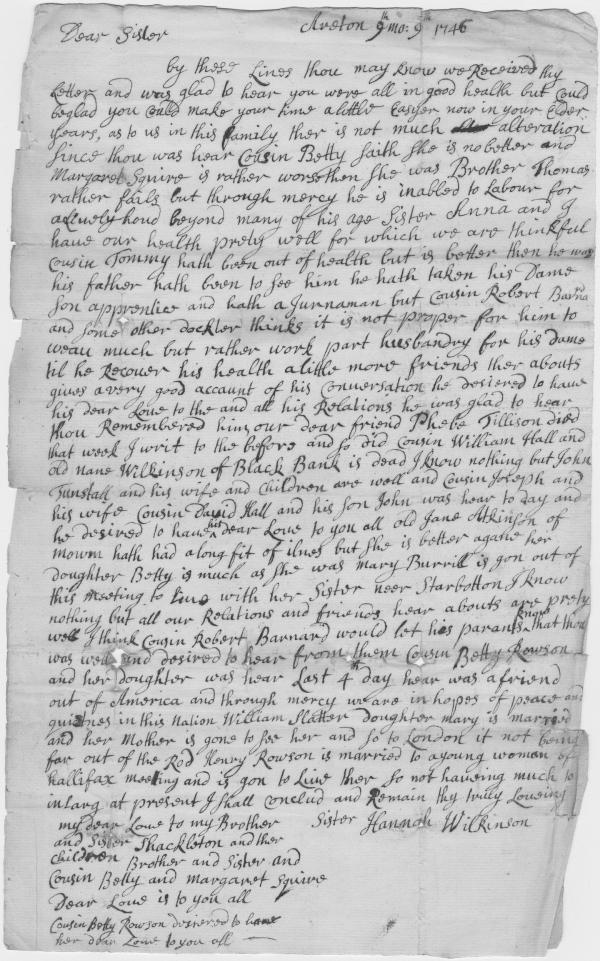 Areton 9th mo: 9th 1746
Dear Sister
by these Lines thou may know we Received thy
Letter and was glad to hear you were all in good health but Could
beglad you Could make your time alittle Easyer now in your Elder
years, as to us in this family ther is not much alteration
since thou was hear Cousin Betty saith she is no better and
Margaret Squire is rather worse then she was Brother Thomas
rather fails but through mercy he is inabled to Labour for
a Lively houd beyond many of his age Sister Anna and I
have our health prety well for which we are thinkful
Cousin Tommy hath been out of health but is better then he was
his father hath been to see him he hath taken his Dame
son apprentice and hath a Jurnaman but Cousin Robert Barna
and some other dockter thinks it is not proper for him to
weau much but rather work part husbandry for his dame
til he Recover his health alittle more friends ther abouts
gives avery good accaunt of his Conversation he desiered to have
his dear Love to the and all his Relations he was glad to hear
thou Remembered him, our dear friend Phebe Tillison died
that week I writ to the before and so did Cousin William Hall and
old nane Wilkinson of Black Bank is dead I know nothing but John
Tunstall and his wife and Children are well and Cousin Joseph and
his wife Cousin David Hall and his son John was hear to day and
he desired to have his dear Love to you all old Jane Atkinson of
mowm hath had along fit of ilnes but she is better agane her
doughter Betty is much as she was mary Burrill is gon out of
this meeting to Live with her Sister neer Starbotton I know
nothing but all our Relations and friends hear abouts are prety
well I think Cousin Robert Barnard would let his parants know that thou
was well and desired to hear from them Cousin Betty Rowson
and her doughter was hear Last 4th day hear was a friend
out of America and through mercy we are in hopes of peace and
quietnes in this Nation William Slatter doughter mary is married
and her Mother is gone to see her and so to London it not being
far out of the Rod Henry Rowson is married to ayoung woman of
hallifax meeting and is gon to Live ther so not haveing much to
inlarg at present I shall Conclud and Remain thy truly Loveing
Sister Hannah Wilkinson
my dear Love to my Brother
and Sister Shackleton and ther
Children Brother and Sister and
Cousin Betty and margaret Squire
Dear Love is to you all
Cousin Betty Rowson desiered to have
her dear Love to you all